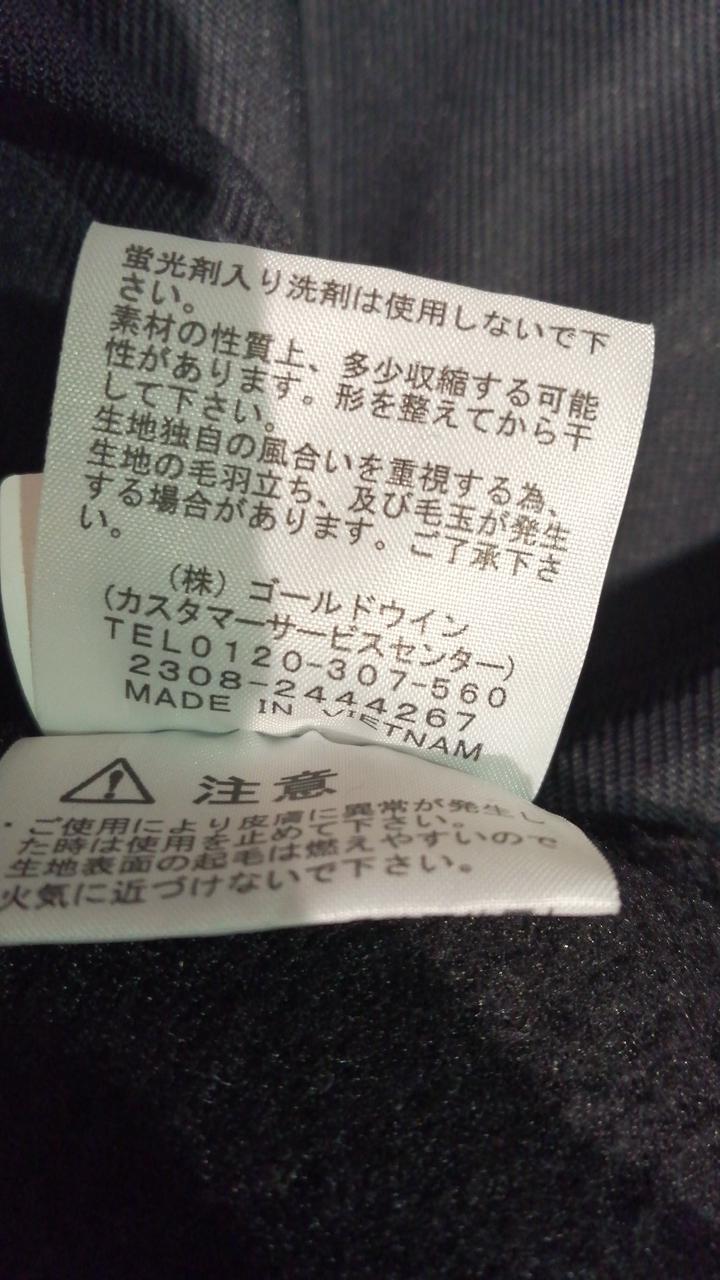 蛍光剤入り洗剤は使用しないで下
さい。
素材の性質上、多少収縮する可能
性があります。形を整えてから干
して下さい。
生地独自の風合いを重視する為、
生地の毛羽立ち、及び毛玉が発生
する場合があります。ご了承下さ
い。
(株)ゴールドウイン
(カスタマーサービスセンター)
TEL0120-307-560
2308-2444267
MADE IN VIETNAM
注意
・ご使用により皮膚に異常が発生し
た時は使用を止めて下さい。
生地表面の起毛は燃えやすいので
火気に近づけないで下さい。